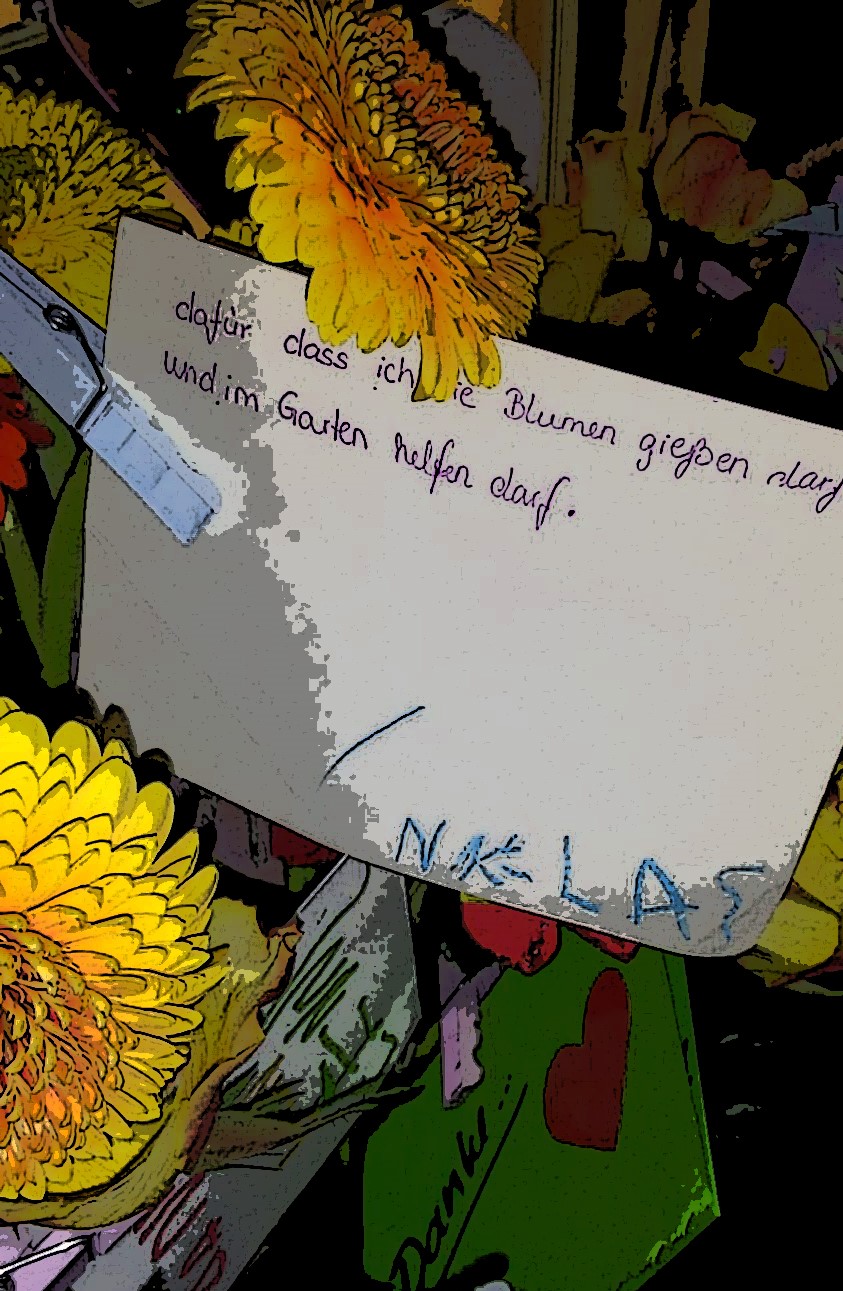 dafür dass ich die Blumen gießen darf
und im Garten helfen darf.
NIKLAS
Danke...